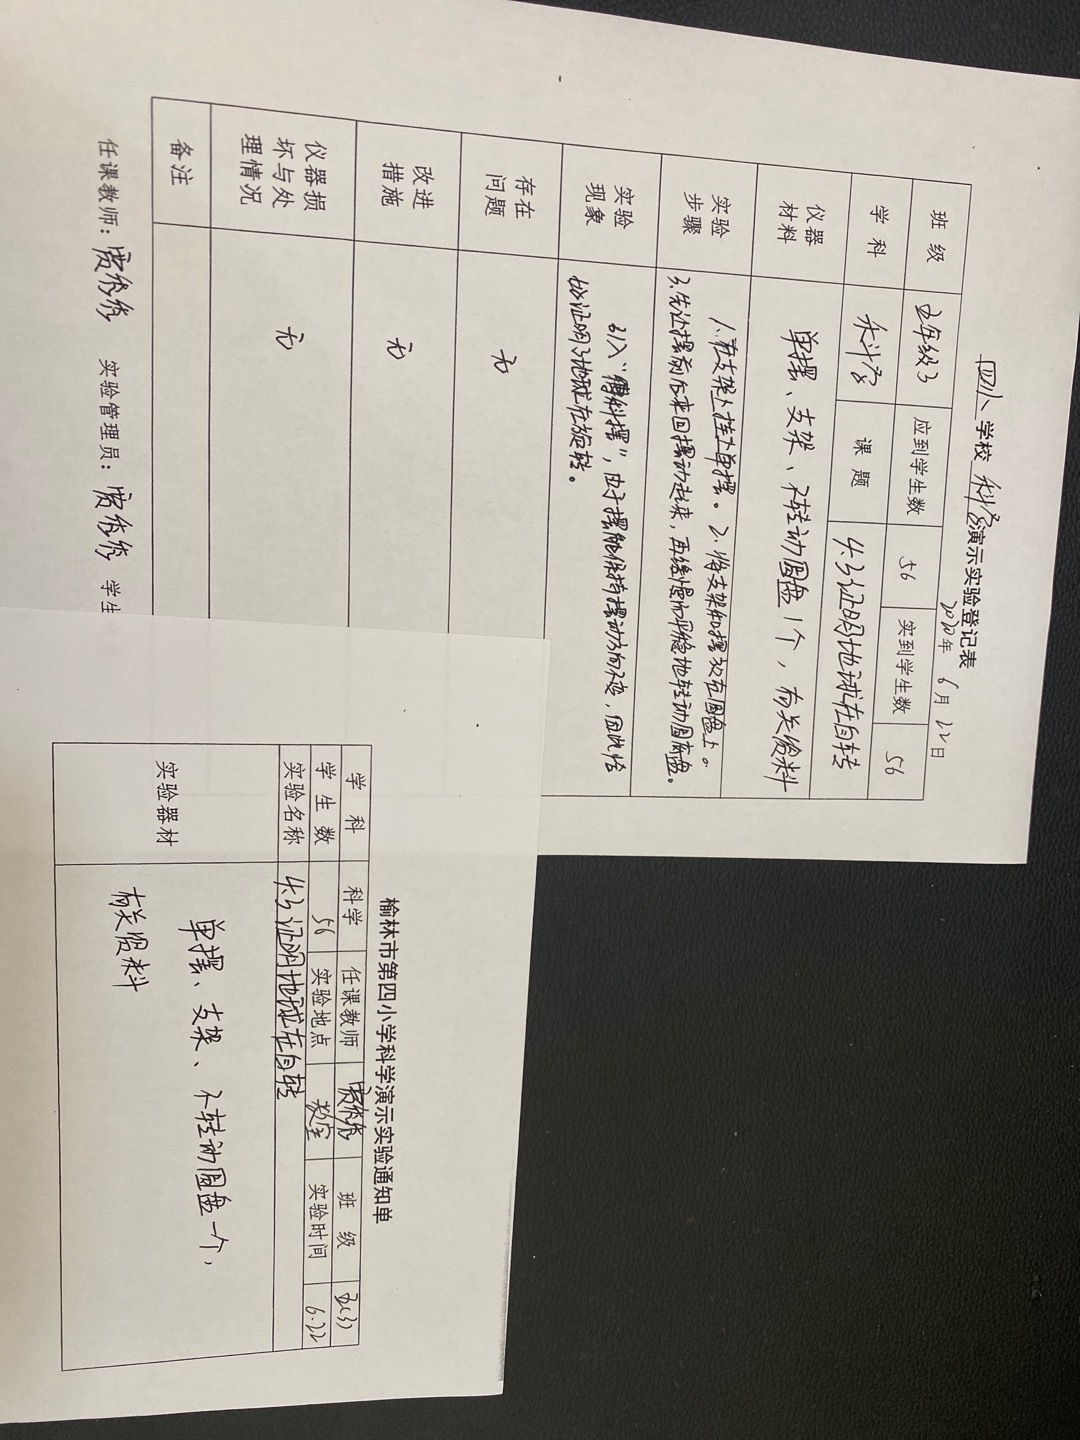 四小 学校 科学 演示实验登记表
2020年 6月 22日
班 级 五年级3 应到学生数 56 实到学生数 56
学 科 科学 课 题 4.3证明地球在自转
仪器
材料
单摆、支架、不转动圆盘1个，有关资料
实验
步骤
1.在支架上挂上单摆。2.将支架和摆放在圆盘上。
3.先让摆前后来回摆动起来，再缓慢而平稳地转动圆底盘。
实验
现象
引入“傅科摆”，由于摆能保持摆动方向不变，因此恰
恰证明了地球在旋转。
存在
问题
无
改进
措施
无
仪器损
坏与处
理情况
无
备注
任课教师： 实验管理员： 学生
榆林市第四小学科学演示实验通知单
学 科 科学 任课教师 班 级 五(3)
学 生 数 56 实验地点 教室 实验时间 6.22
实验名称 4.3证明地球在自转
实验器材
单摆、支架、不转动圆盘一个，
有关资料